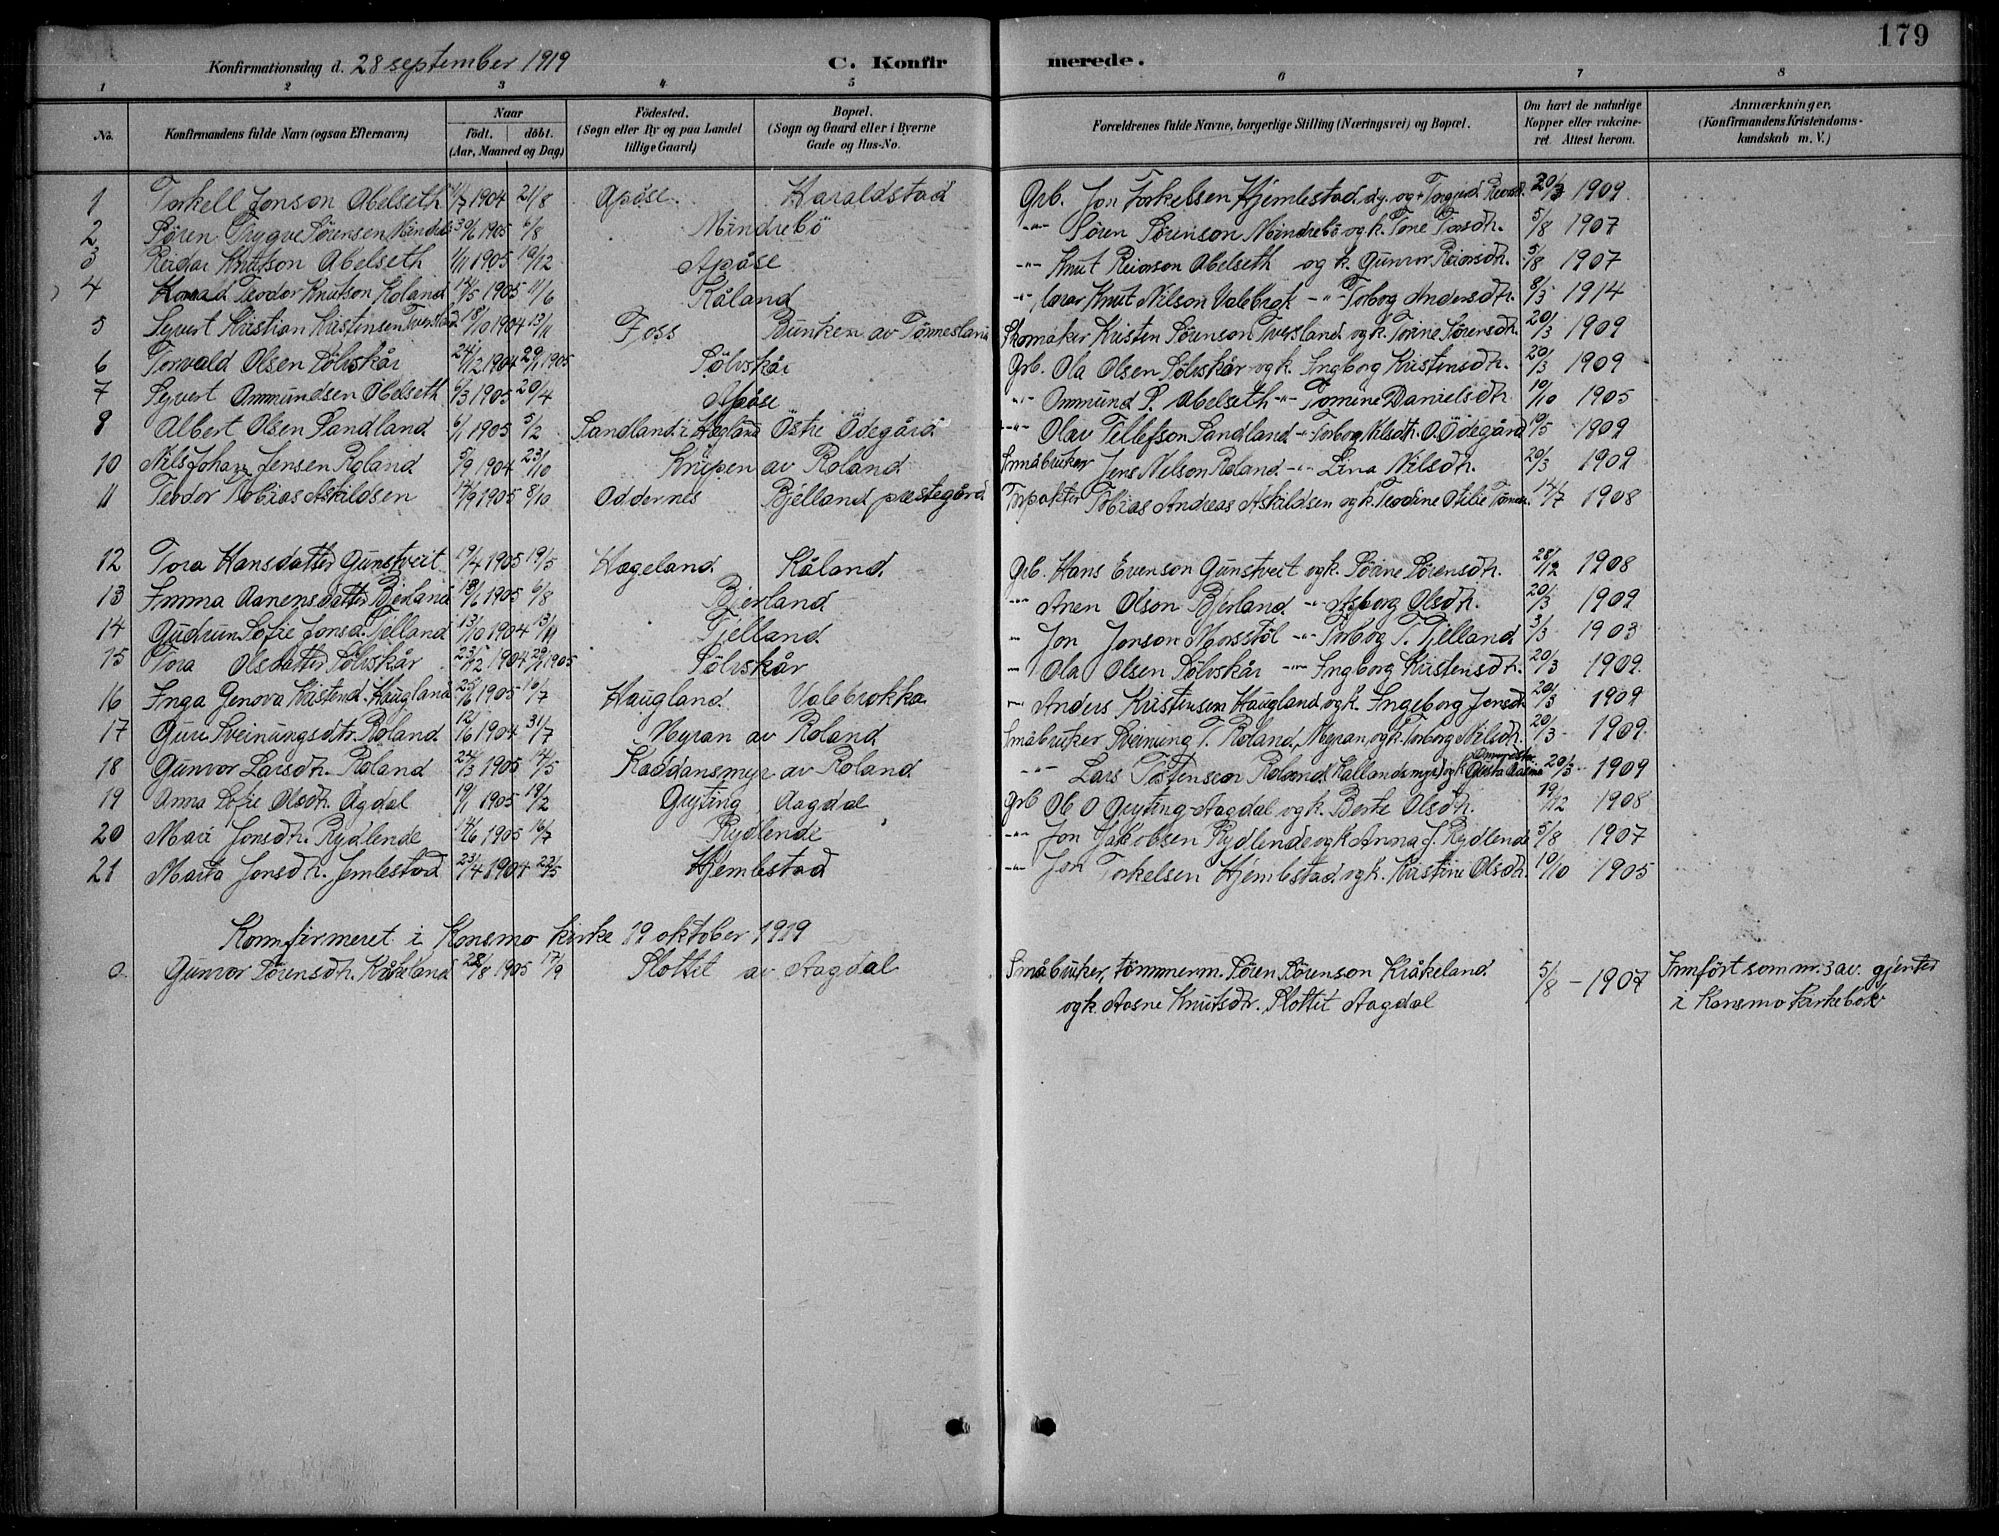 179
Konfirmationsdag d. 28 september 1919 C. Konfirmerede.
1 2 3 4 5 6 7 8
No. Konfirmandens fulde Navn (ogsaa Efternavn) Naar født. døbt. (Aar, Maaned og Dag) Födested. (Sogn eller By og paa Landet tillige Gaard) Bopæl. (Sogn og Gaard eller i Byerne Gade og Hus-No. Forældrenes fulde Navne, borgerlige Stilling (Næringsvei) og Bopæl. Om havt de naturlige Kopper eller vakcineret. Attest herom. Anmærkninger. (Konfirmandens Kristendomskundskab m. V.)
1 Torkell Jonson Abelseth /7 1904 21/8 Apöse. Haraldstad Grb. Jon Torkelsen Hjemlestad dy. og Torgerd 20/3 1909.
2 Sören Trygve Sörensen 30/6 1905 6/8 Mindrebö -"- Sören Sörenson Mindrebö og k. Tone Torsdtr. 5/8 1907
3 Reidar Knutson Abelseth 1/11 1905 10/12 Apöse -"- Knut Reierson Abelseth og k. Gunvor Reiersdtr. 5/8 1907
4 Teodor Knutson Roland 14/5 1905 11/6 Råland -"- Knut Nilson Valebrok -"- Torborg Andersdtr. 8/5 1914
5 Syvert Kristian Kristensen 18/10 1904 13/11 Foss Bunken av Tönnesland Skomaker Kristen Sörenson Tversland og k. Torine Sörensdtr. 20/3 1909
6 Torvald Olsen Sölvskår 24/12 1904 29/1 1905 Sölvskår Grb. Ola Olsen Sölvskår og k. Ingborg Kristensdtr. 20/3 1909
7 Syvert Ommundsen Abelseth 6/3 1905 20/4 Apöse -"- Ommund S. Abelseth -"- Tomine Danielsdtr. 10/10 1905
8 Albert Olsen Sandland 6/1 1905 5/2 Sandland i Hægland Östre Ödegård -"- Olav Tellefson Sandland -"- Torborg Nilsdtr. O. Ödegård 19/5 1909
10 Nils Johan Jensen Roland 5/9 1904 23/10 Knipen av Roland Småbruker Jens Nilson Roland -"- Lina Nilsdtr. 20/3 1909
11 Teodor Tobias Askildsen 14/9 1905 8/10 Oddernes Bjelland præstegård Forpakter Tobias Andreas Askildsen og k. Teodine Otilie 14/7 1908
12 Tora Hansdatter Gunstveit 19/4 1905 19/5 Hægeland Råland Grb. Hans Evenson Gunstveit og k. Sörine Sörensdtr. 28/12 1908
13 Emma Aanensdatter Bjerland 18/6 1905 6/8 Bjerland -"- Anen Olson Bjerland -"- Asborg Olsdtr. 20/3 1909
14 Gudrun Sofie Jonsd. Fjelland 13/10 1904 13/11 Fjelland -"- Jon Jonson Mosstöl -"- Torborg T. Fjelland 3/3 1903
15 Tora Olsdatter Sölvskår 23/12 1904 29/1 1905 Sölvskår -"- Ola Olsen Sölvskår -"- Ingborg Kristensdtr. 20/3 1909.
16 Inga Genova Kristend. Haugland 25/6 1905 16/7 Haugland Valebrokka -"- Anders Kristensen Haugland og k. Ingeborg Jonsdtr 20/3 1909
17 Guri Sveinungsdtr. Roland 12/6 1904 31/7 Myran av Roland Småbruker Sveinung T. Roland, Myran, og k. Torborg Nilsdtr. 20/3 - 1909.
18 Gunvor Larsdtr. Roland 24/3 1905 14/5 Kaddansmyr av Roland -"- Lars Tostenson Roland og k. 20/3 - 1909
19 Anna Sofie Olsdtr. Agdal 19/1 1905 19/2 Gryting Aagdal Grb Ole O Gryting-Aagdal og k. Berte Olsdtr. 19/12 1908
20 Mari Jonsdtr. Rydlende 14/6 1905 16/7 Rydlende -"- Jon Jakobsen Rydlende og k Anna J. Rydlende 5/8 1907
21 Marta Jonsdtr. Jemlestad 23/4 1904 22/5 Hjemlestad -"- Jon Torkelsen Hjemlestad og k. Kristine Olsdtr. 10/10 1905
Konnfirmeret i Konsmo kirke 19 oktober 1919
0 Gunvor Sörensdtr. Kråkeland 28/8 1905 17/9 Slottet av Aagdal Småbruker, tömmerm. Sören Sörenson Kråkeland 5/8 - 1907 Innfört som nr. 3 av gjenter
og k. Aasne Knutsdtr. Slottet Aagdal i Konsmo kirkebok